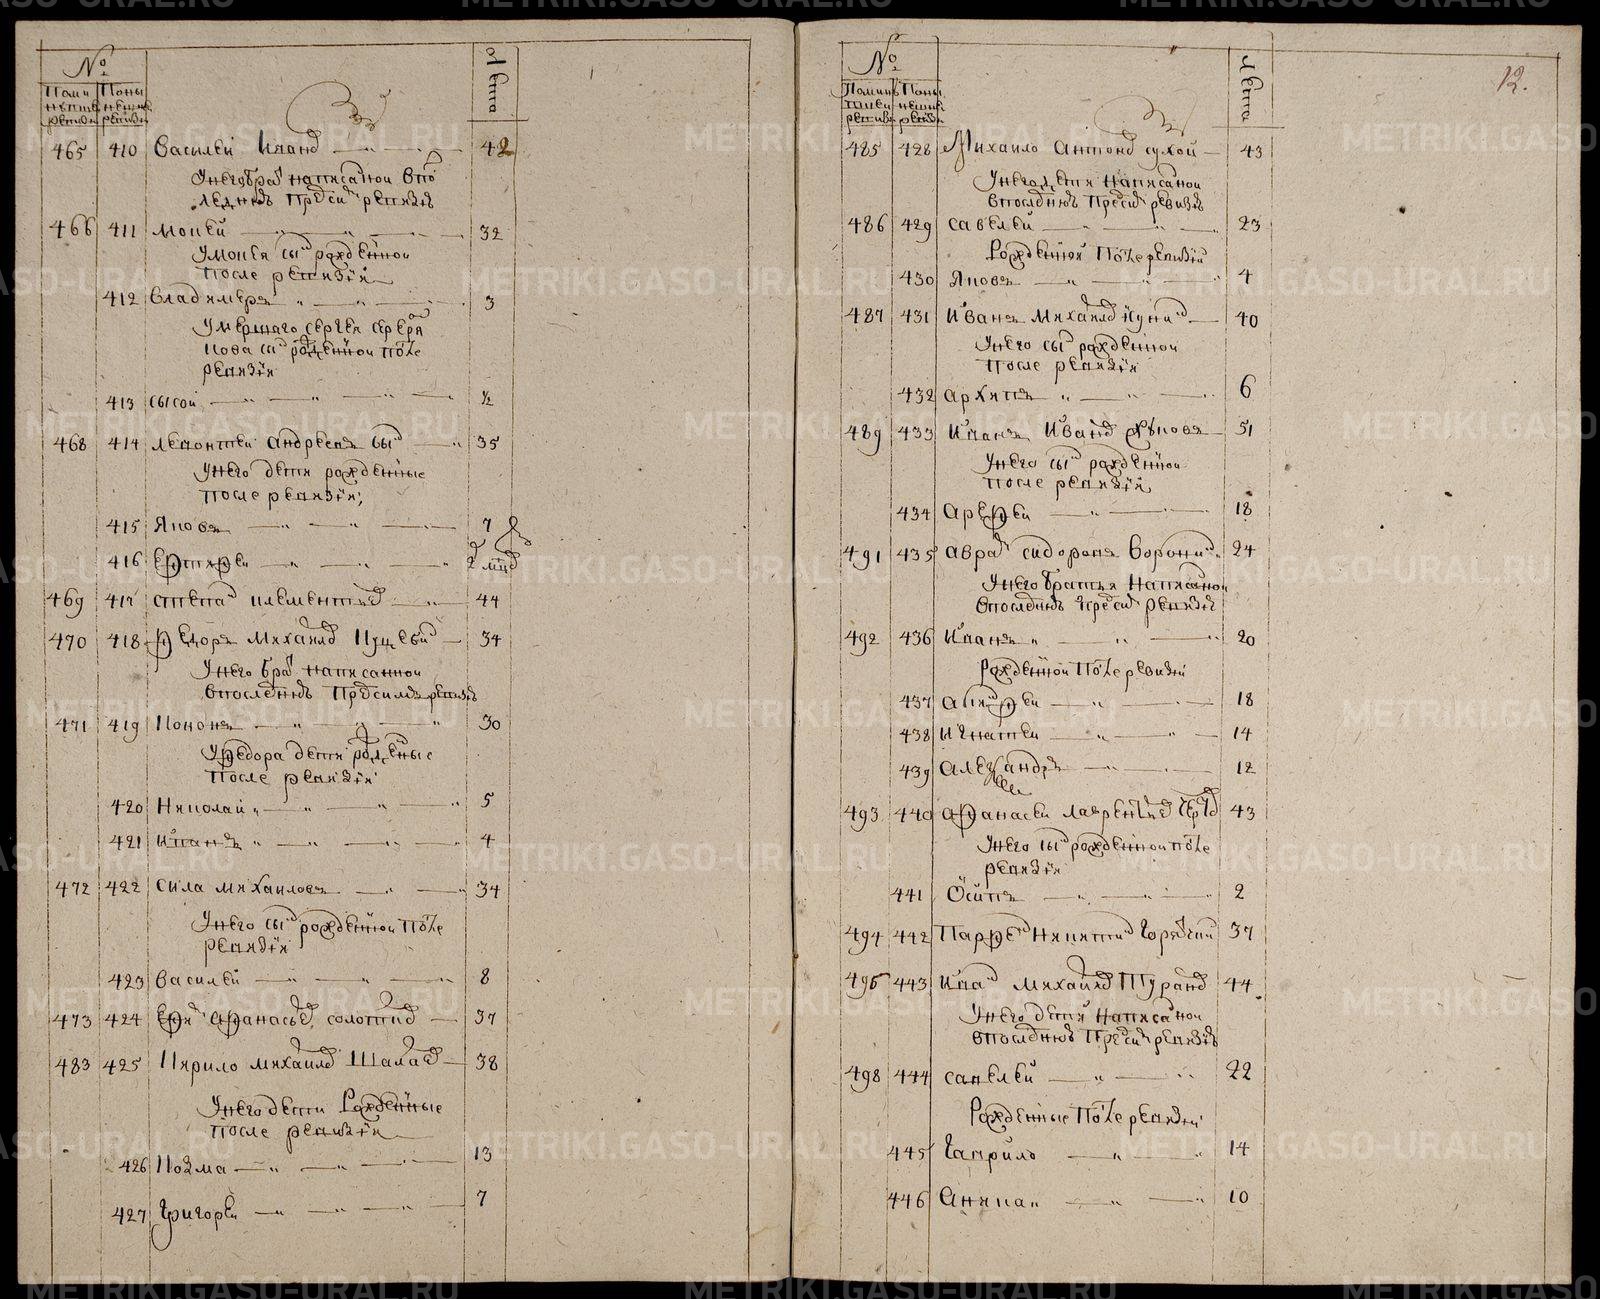 №
Лета
465 410 Василей Иванов 42
У него брат написанной в по
следнюю пред сим ревизию
466 411 Мокей 32
У Мокея сын рожденной
после ревизии
412 Владимеръ 3
Умершаго Сергея
сын рожденной после
ревизии
413 Сысой ½
468 414 Леонтей Андреевъ сын 35
У него дети рожденные
после ревизии
415 Яковъ 7
416 2 мцов
469 417 Степан Клементьев 44
470 418 Федоръ Михайлов 34
У него брат написанной
в последнюю пред симъ ревизию
471 419 Кононъ 30
У Федора дети рожденные
после ревизии
420 Николай 5
421 Иванъ 4
472 422 Сила Михаиловъ 34
У него сын рожденной после
ревизии
423 Василей 8
473 424 Афанасьев 37
483 425 Кирило Михайлов 38
У него дети рожденные
после ревизии
426 Козма 13
427 Григорей 7
12.
№
Лета
485 428 Михайло Антонов Сухой 43
У него дети написанной
в последнюю пред сим ревизию
486 429 Савелей 23
Рожденной после ревизии
430 Яковъ 4
487 431 Иванъ Михайлов 40
У него сын рожденной
после ревизии
432 Архипъ 6
489 433 Иванъ Иванов 51
У него сын рожденной
после ревизии
434 Арефей 18
491 435 Аврам Сидоровъ 24
У него братья написанной
в последнюю пред сим ревизию
492 436 Иванъ 20
Рожденной после ревизии
437 18
438 Игнатей 14
439 Александръ 12
493 440 Афанасей Лаврентьев 43
У него сын рожденной после
ревизии
441 Осипъ 2
494 442 Парфен Никитин Горячий 37
495 443 Иван Михайлов Туранов 44
У него дети написанной
в последнюю пред сим ревизию
498 444 Савелей 22
Рожденные после ревизии
445 Гаврило 14
446 Аника 10
METRIKI.GASO-URAL.RU